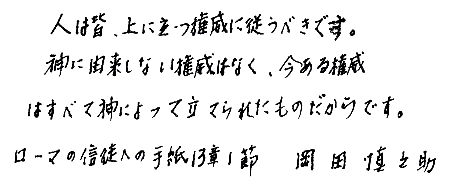 人は皆、上に立つ権威に従うべきです。
神に由来しない権威はなく、今ある権威
はすべて神によって立てられたものだからです。
ローマの信徒への手紙13章1節　岡田慎之助